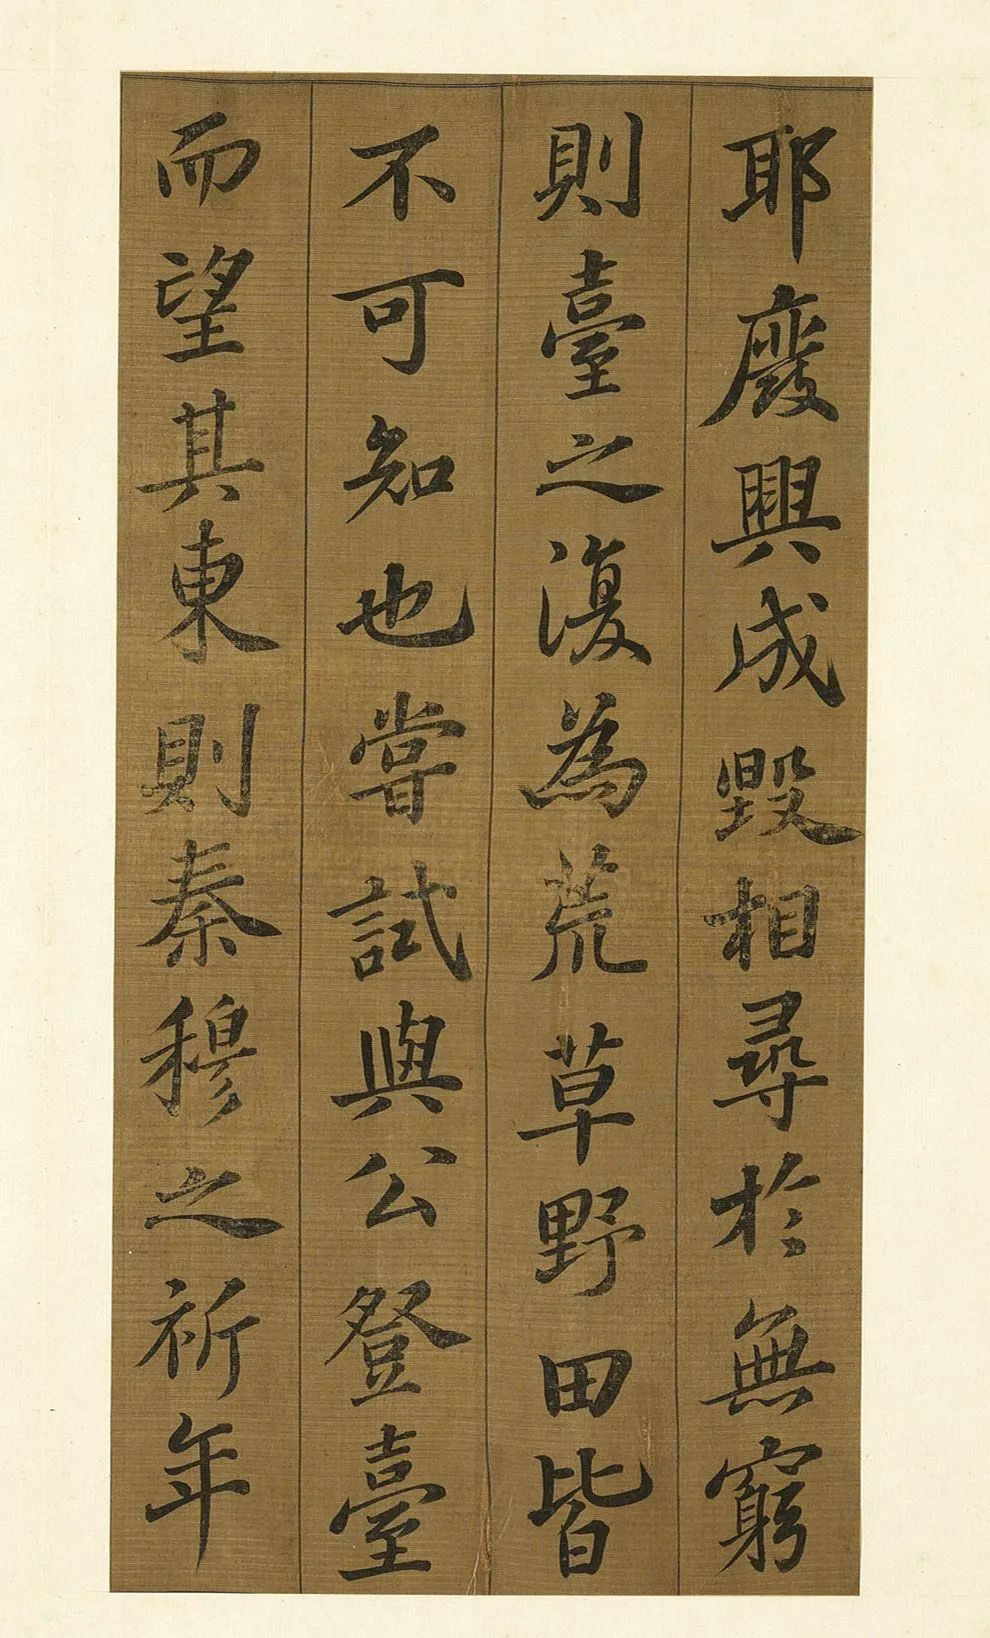 耶廢興成毀相尋於無窮
則臺之復為荒草野田皆
不可知也嘗試與公登臺
而望其東則秦穆之祈年